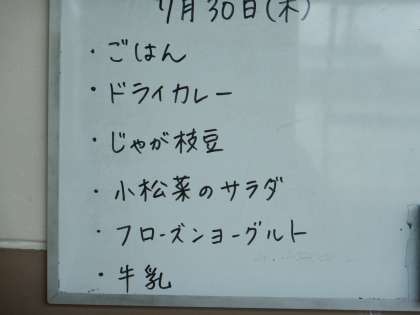 7月30日(木)
・ごはん
・ドライカレー
・じゃが枝豆
・小松菜のサラダ
・フローズンヨーグルト
・牛乳